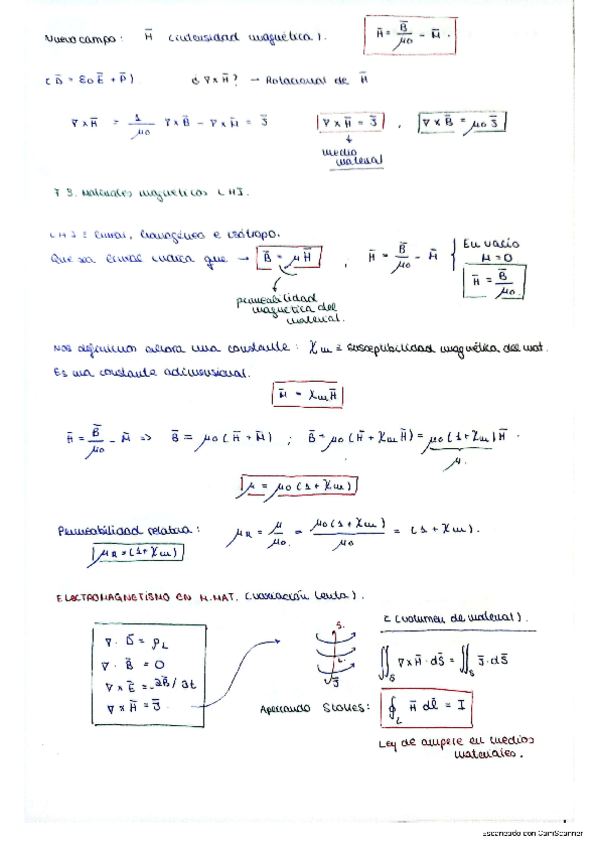 Nuevo campo: H̄ (intensidad magnética). H̄ = B̄/μ₀ - M̄.
(D̄ = ε₀Ē + P̄) ¿∇×H̄? → Rotacional de H̄
∇×H̄ = 1/μ₀ ∇×B̄ - ∇×M̄ = J̄ ∇×H̄ = J̄ , ∇×B̄ = μ₀J̄
medio
material
7.3. Materiales magnéticos LHI.
LHI ≡ lineal, homogéneo e isótropo.
Que sea lineal indica que → B̄ = μH̄ , H̄ = B̄/μ₀ - M̄ { En vacío M = 0 H̄ = B̄/μ₀
permeabilidad
magnética del
material.
Nos definimos ahora una constante: χm ≡ susceptibilidad magnética del mat.
Es una constante adimensional.
M̄ = χm H̄
H̄ = B̄/μ₀ - M̄ => B̄ = μ₀(H̄ + M̄) ; B̄ = μ₀(H̄ + χm H̄) = μ₀(1 + χm)H̄.
μ.
μ = μ₀(1 + χm)
Permeabilidad relativa: μR = μ/μ₀ = μ₀(1 + χm)/μ₀ = (1 + χm).
μR = (1 + χm)
ELECTROMAGNETISMO EN M.MAT. (variación lenta).
S. (volumen de material).
∇·D̄ = ρL
∇·B̄ = 0
∇×Ē = -∂B̄/∂t
∇×H̄ = J̄.
L.
J̄
∬S ∇×H̄·dS̄ = ∬S J̄·dS̄
Aplicando Stokes: ∮L H̄ dl̄ = I
Ley de ampere en medios
materiales.
Escaneado con CamScanner